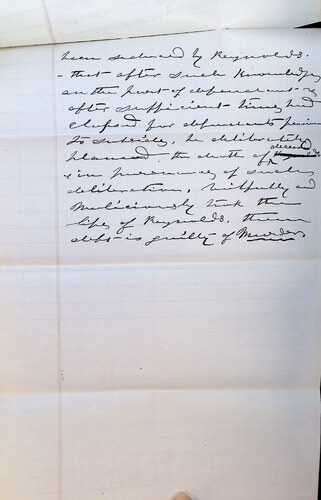 been seduced by Reynolds.
- that after such knowledge
on the part of defendant - &
after sufficient time had
elapsed for defendants passion
to subside, he deliberately
planned the death of deceased
& in pursuance of such
deliberation, wilfully and
maliciously took the
life of Reynolds, then
deft is guilty of Murder